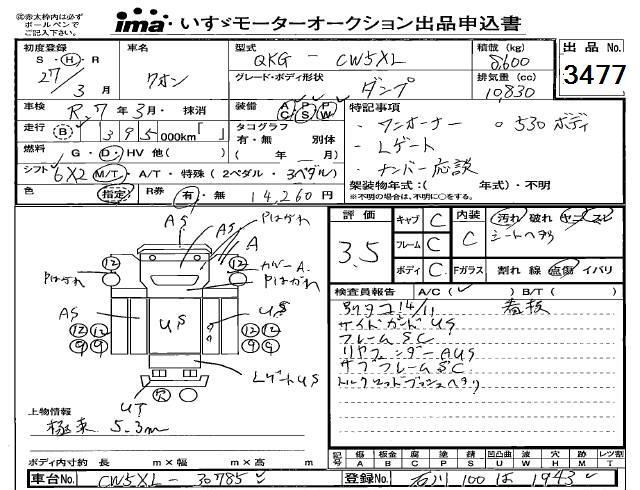 ㊟赤太枠内は必ず
ボールペンで
ご記入下さい。
ima いすゞモーターオークション出品申込書
初度登録 車名 型式 積載 (kg) 出品 No.
S・H・R クオン QKG - CW5XL 8,600
27/3月 グレード・ボディ形状 ダンプ 排気量 (cc) 10,830 3477
車検 R.7年3月・抹消 装備 A/C P/S P/W 特記事項
走行 (B) 1 3 9 5 000km「 」 タコグラフ 有・無 別体
・ワンオーナー ○530ボディ
燃料 G・D・HV 他( ) ( 年 日)
・Lゲート
シフト 6X2 M/T・A/T・特殊 (2ペダル・3ペダル)
・ナンバー応談
色 指定 R券 有・無 14,260円
架装物年式:( 年式)・不明
※不明の場合は、不明に○をする。
評価 3.5
キャブ C 内装 C 汚れ 破れ ヤニ スレ
シートヘタリ
フレーム C
ボディ C Fガラス 割れ 線 点傷 イバリ
AS Pはがれ
AS A
⑫ ⑫ カバーA.
Pはがれ Pはがれ
AS US US
⑫⑫ ⑫⑫
⑨⑨ ⑨⑨
LゲートUS
UT 穴
検査員報告 A/C( ) B/T( )
別タコ14/11 看板
サイドガードUS
フレームSC
リヤフェンダーAUS
サブフレームSC
トルクロッドブッシュヘタリ
上物情報
極東 5.3m
記号 傷 板金 腐 塗 錆 凹凸曲 波 穴 跡 レツ割
A B C P S U W H M T
ボディ内寸約 長 m×幅 m×高 m
車台No. CW5XL - 30785 登録No. 石川 100 は 1943